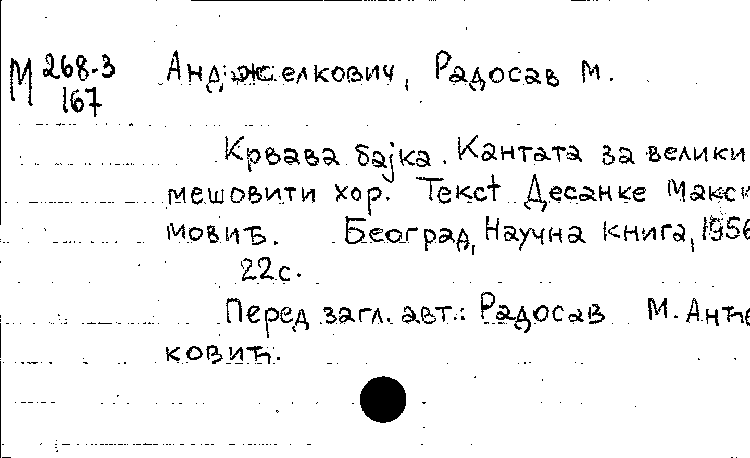 М 268-3
167
Анджелкович, Радосав М.
Крвава бајка. Кантата за велики
мешовити хор. Текст Десанке Макси
мовић. Београд, Научна книга, 1956
22с.
Перед загл. авт.: Радосав М. Анђе
ковић.